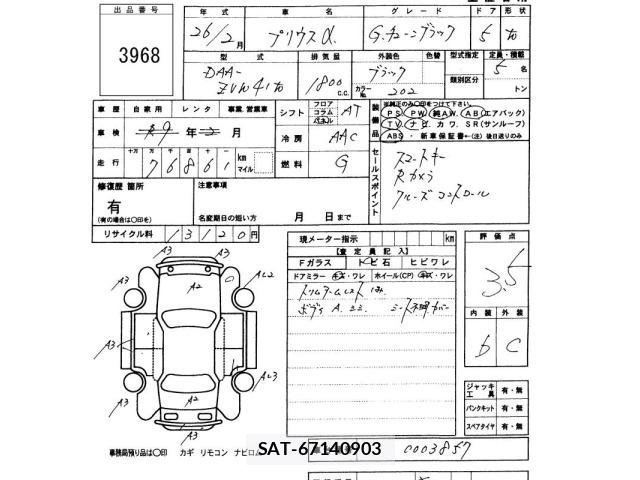 出品番号
3968
年式 車名 グレード ドア 形状
26/2月 プリウスα G.チューンブラック 5 右
型式 排気量 外装色 色替 型式指定 定員・積載
DAA-ZVW41右 1800 C.C. ブラック カラーNo. 202 類別区分 5名 トン
車歴 自家用 レンタ 事業.営業車
車検 年 月
走行 十万 万 千 百 十 76861 km マイル
シフト フロア コラム パネル AT
冷房 AAC
燃料 G
装備品 ※純正のみ〇印をつけて下さい。
PS PW 純AW AB(エアバック)
TV ナビ カワ SR(サンルーフ)
ABS ・新車保証書←(注)後日送りのみ
セールスポイント
スマートキー
Rカメラ
クルーズコントロール
修復歴 箇所
有
(有の場合は〇印を)
注意事項
名変期日の短い方 月 日まで
リサイクル料 13120円
現メーター指示 km
【査定員記入】
Fガラス トビ石 ヒビワレ
ドアミラー キズ・ワレ ホイール(CP) キズ・ワレ
評価点
3.5
内装 外装
b C
ジャッキ工具 有・無
パンクキット 有・無
スペアタイヤ 有・無
A3
A3 A2 AL2
A3
AL3
A3 A2 A3
A3
事務局預り品は〇印 カギ リモコン ナビロム
SAT-67140903
0003857